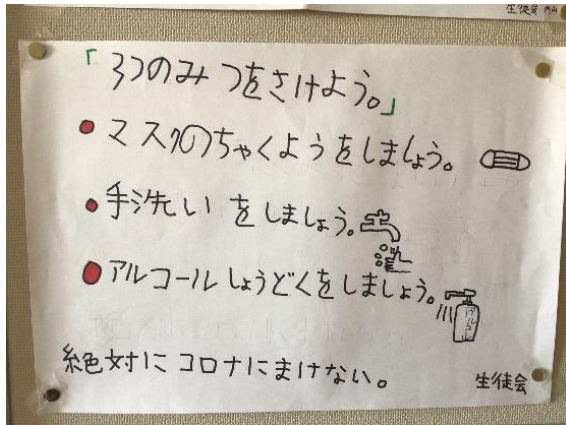 生徒会
「3つのみつをさけよう。」
マスクのちゃくようをしましょう。
手洗いをしましょう。
アルコールしょうどくをしましょう。
アルコール
絶対にコロナにまけない。
生徒会